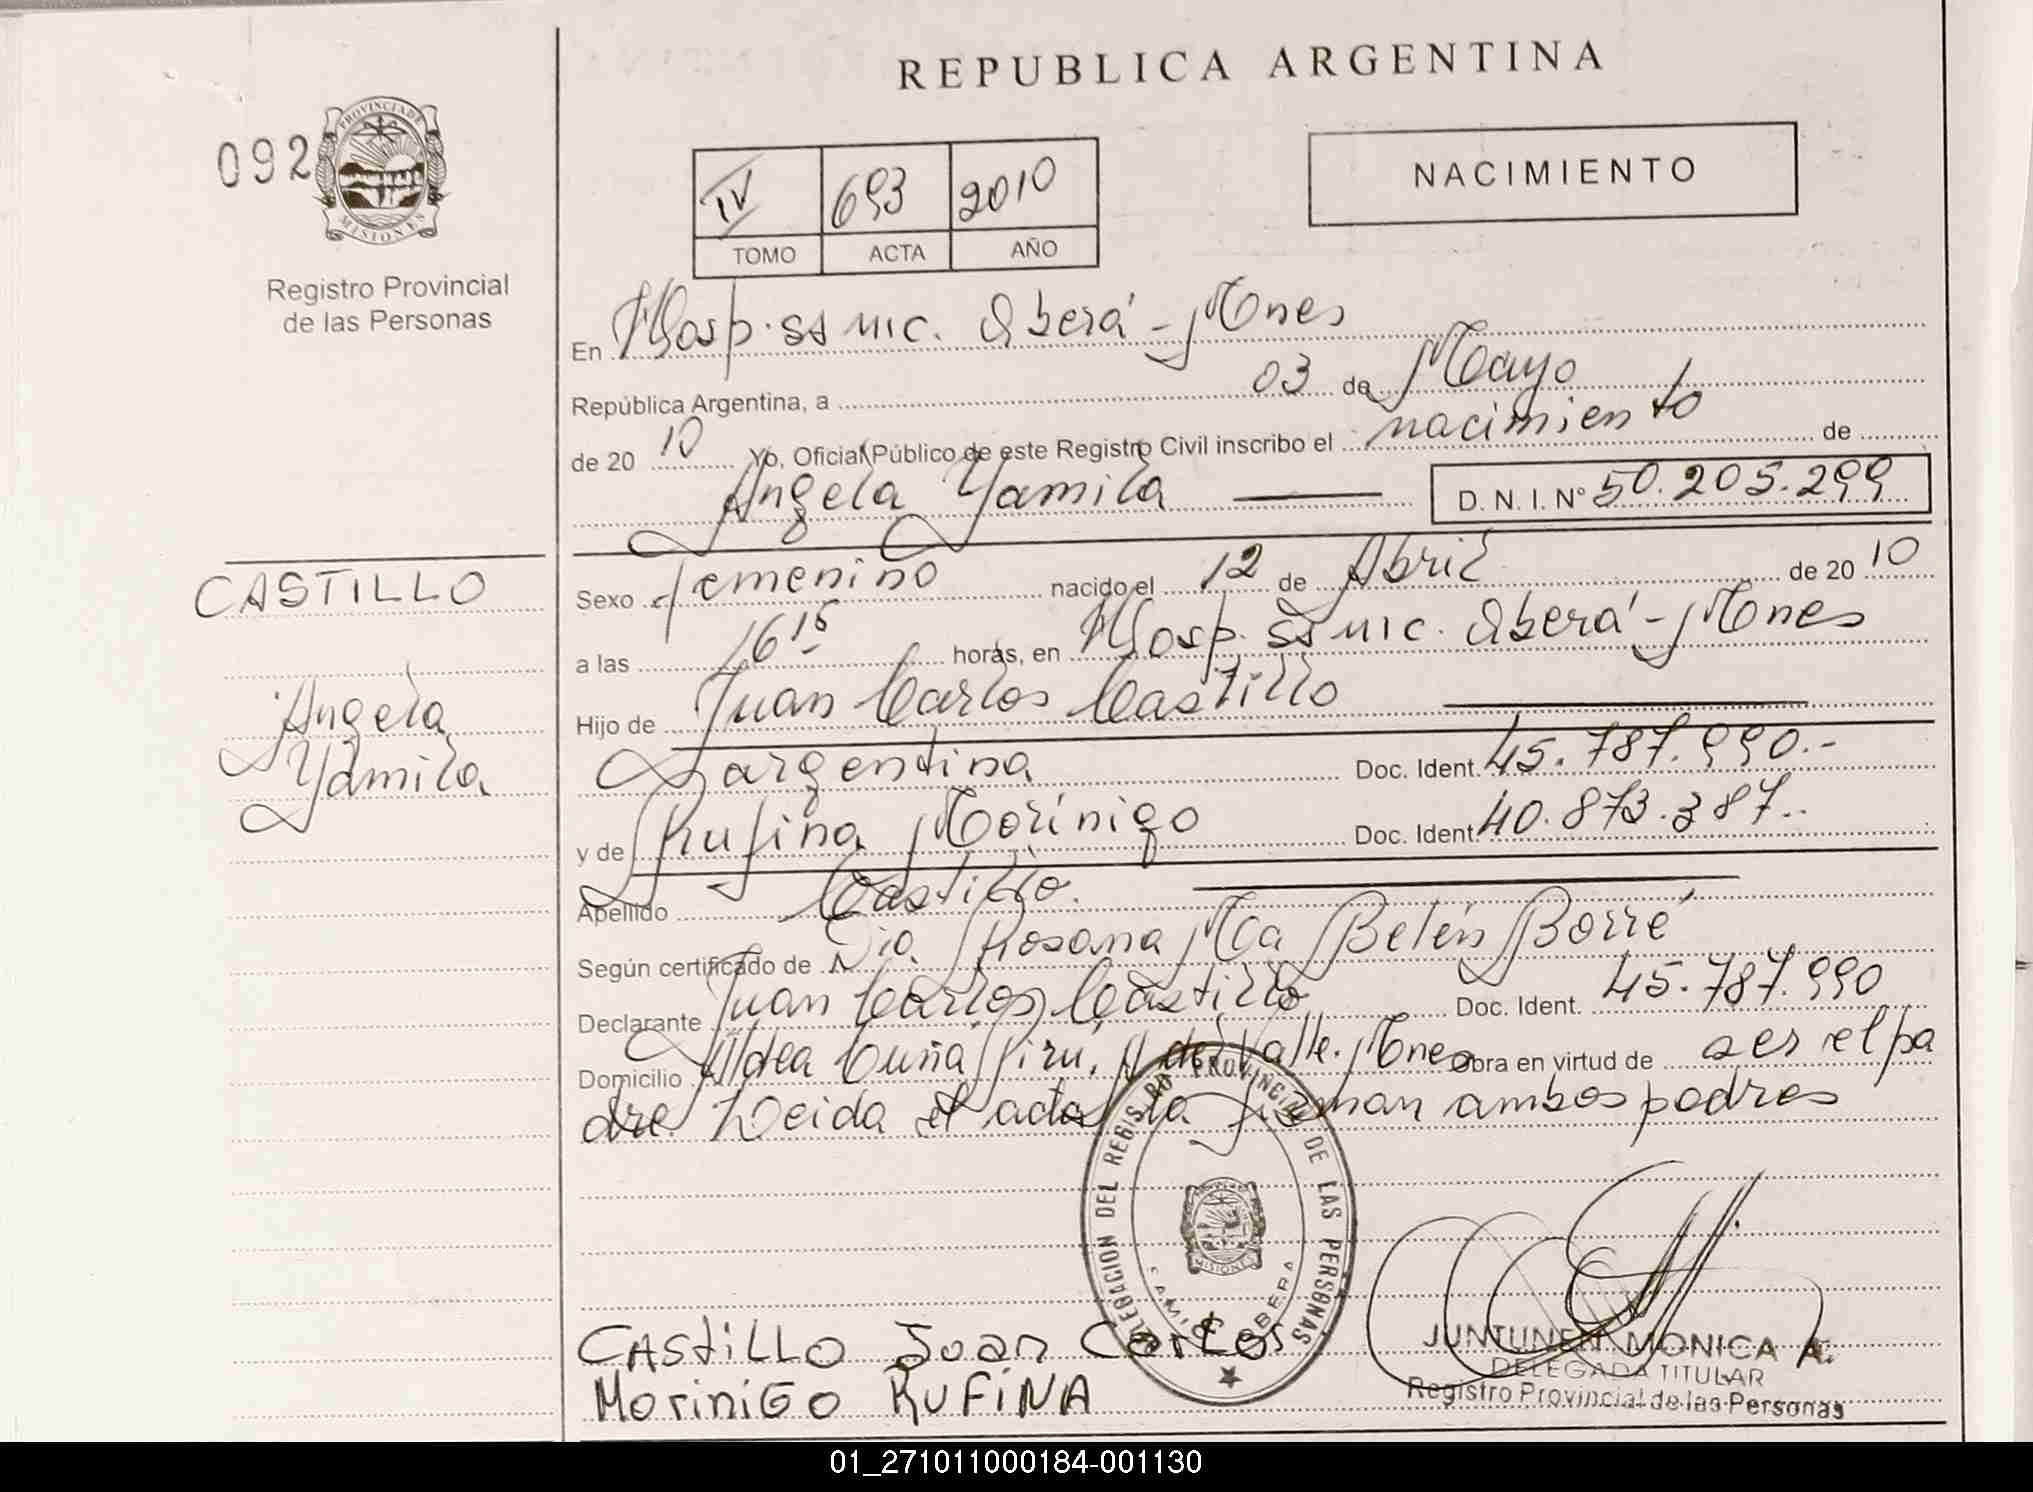 REPUBLICA ARGENTINA
092
PROVINCIA DE MISIONES
Registro Provincial
de las Personas
IV 693 2010
TOMO ACTA AÑO
NACIMIENTO
En Hosp. SS MIC. Oberá - Mnes
República Argentina, a 03 de Mayo
de 20 10 Yo, Oficial Público de este Registro Civil inscribo el nacimiento de
Angela Yamila D. N. I. Nº 50.205.299
CASTILLO
Angela
Yamila
Sexo femenino nacido el 12 de Abril de 20 10
a las 16 15 horas, en Hosp. SS MIC. Oberá - Mnes
Hijo de Juan Carlos Castillo
argentina Doc. Ident. 45.787.990.-
y de Rufina Morínigo Doc. Ident. 40.873.387..
Apellido Castillo.
Según certificado de Rosana Ma Belén Borré
Declarante Juan Carlos Castillo Doc. Ident. 45.787.990
Domicilio Aldea Cuña Pirú, A del Valle. Mnes Obra en virtud de ser el pa
dre. Leida el acta la firman ambos padres
DELEGACION DEL REGISTRO PROVINCIAL DE LAS PERSONAS
MISIONES
CASTILLO Juan Carlos
MoriniGO RUFiNA
JUNTUNEN MONICA A.
DELEGADA TITULAR
Registro Provincial de las Personas
01_271011000184-001130